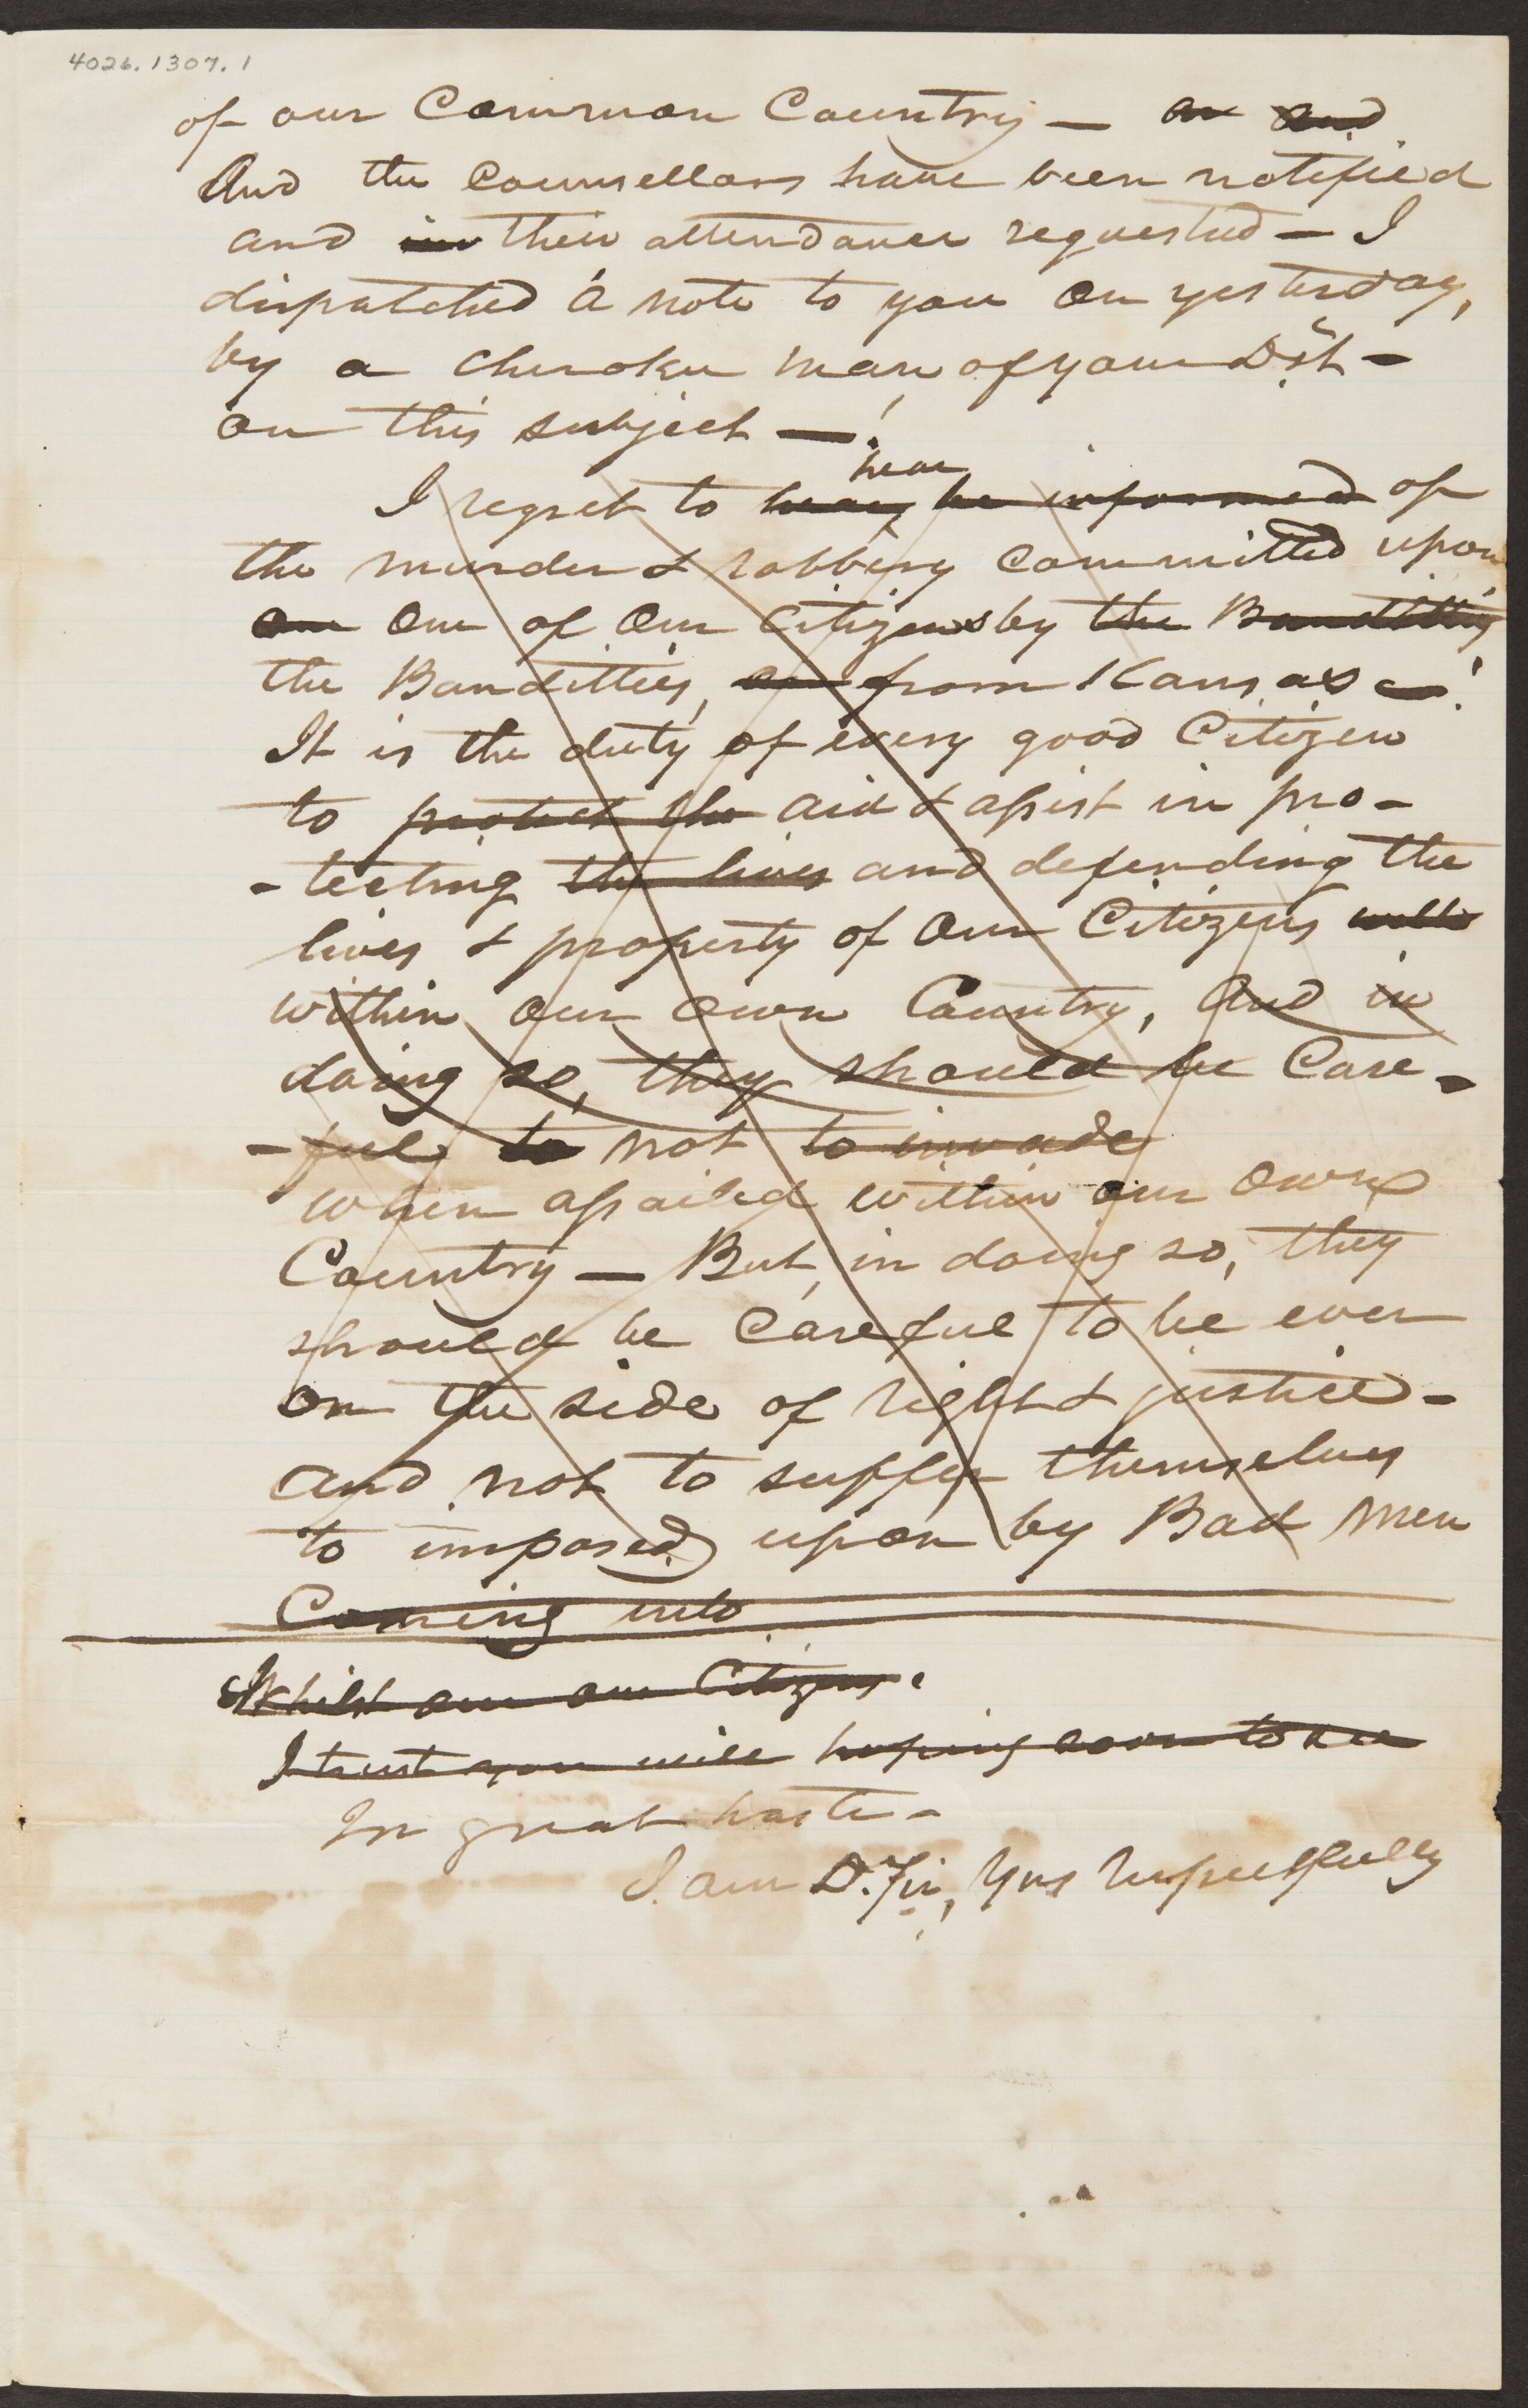 4026.1307.1
of our Common Country — or and
And the Counsellors have been notified
and in their attendance requested — I
dispatched a note to you on yesterday,
by a Cherokee man, of your Dist -
on this subject — !
hear
I regret to hear, be informed of
the murder & robbery committed upon
one One of Our Citizens by the Banditties
the Banditties, from Kansas — !
It is the duty of every good Citizen
to protect the aid & assist in pro-
-tecting the lives and defending the
lives & property of Our Citizens
within our own Country, And in
doing so, they should be Care-
-ful to not to invade
when assailed within our own
Country — But, in doing so, they
should be Careful to be ever
on the side of right & justice -
and not to suffer themselves
to imposed upon by Bad men
Coming into
Whilst our Citizens.
I trust you will hoping soon to see
In great haste -
I am D. Sir, Yrs respectfully